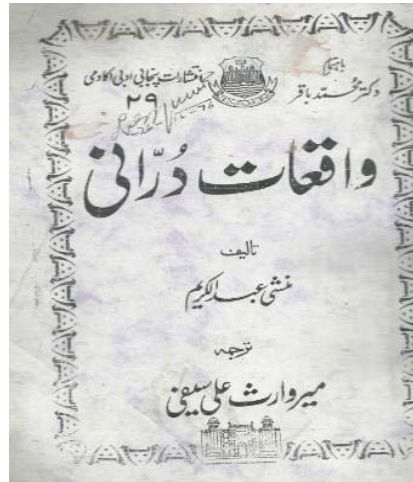 باہتمام
دکتر محمد باقر
انتشارات پنجابی ادبی اکادمی
۲۹
واقعات دُرّانی
تالیف
منشی عبدالکریم
ترجمہ
میر وارث علی سیفی